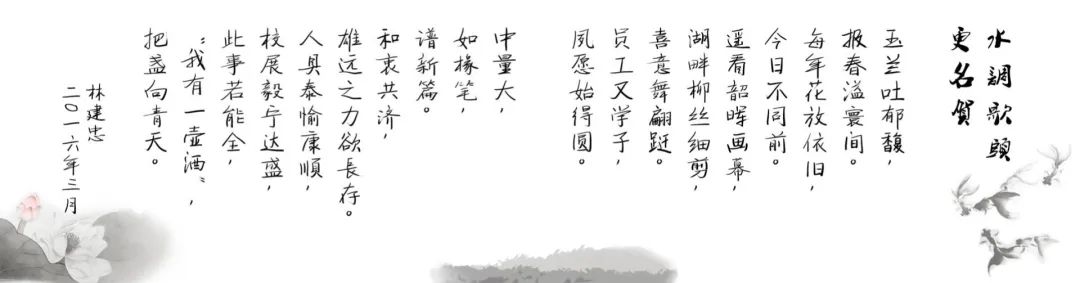 水調歌頭
更名賀
玉兰吐郁馥，
报春溢寰间。
每年花放依旧，
今日不同前。
遥看韶晖画幕，
湖畔柳丝细剪，
喜意舞翩跹。
员工又学子，
夙愿始得圆。
中量大，
如椽笔，
谱新篇。
和衷共济，
雄远之力欲長存。
人具泰愉康順，
校展毅宁达盛，
此事若能全，
“我有一壶酒”，
把盏向青天。
林建忠
二〇一六年三月